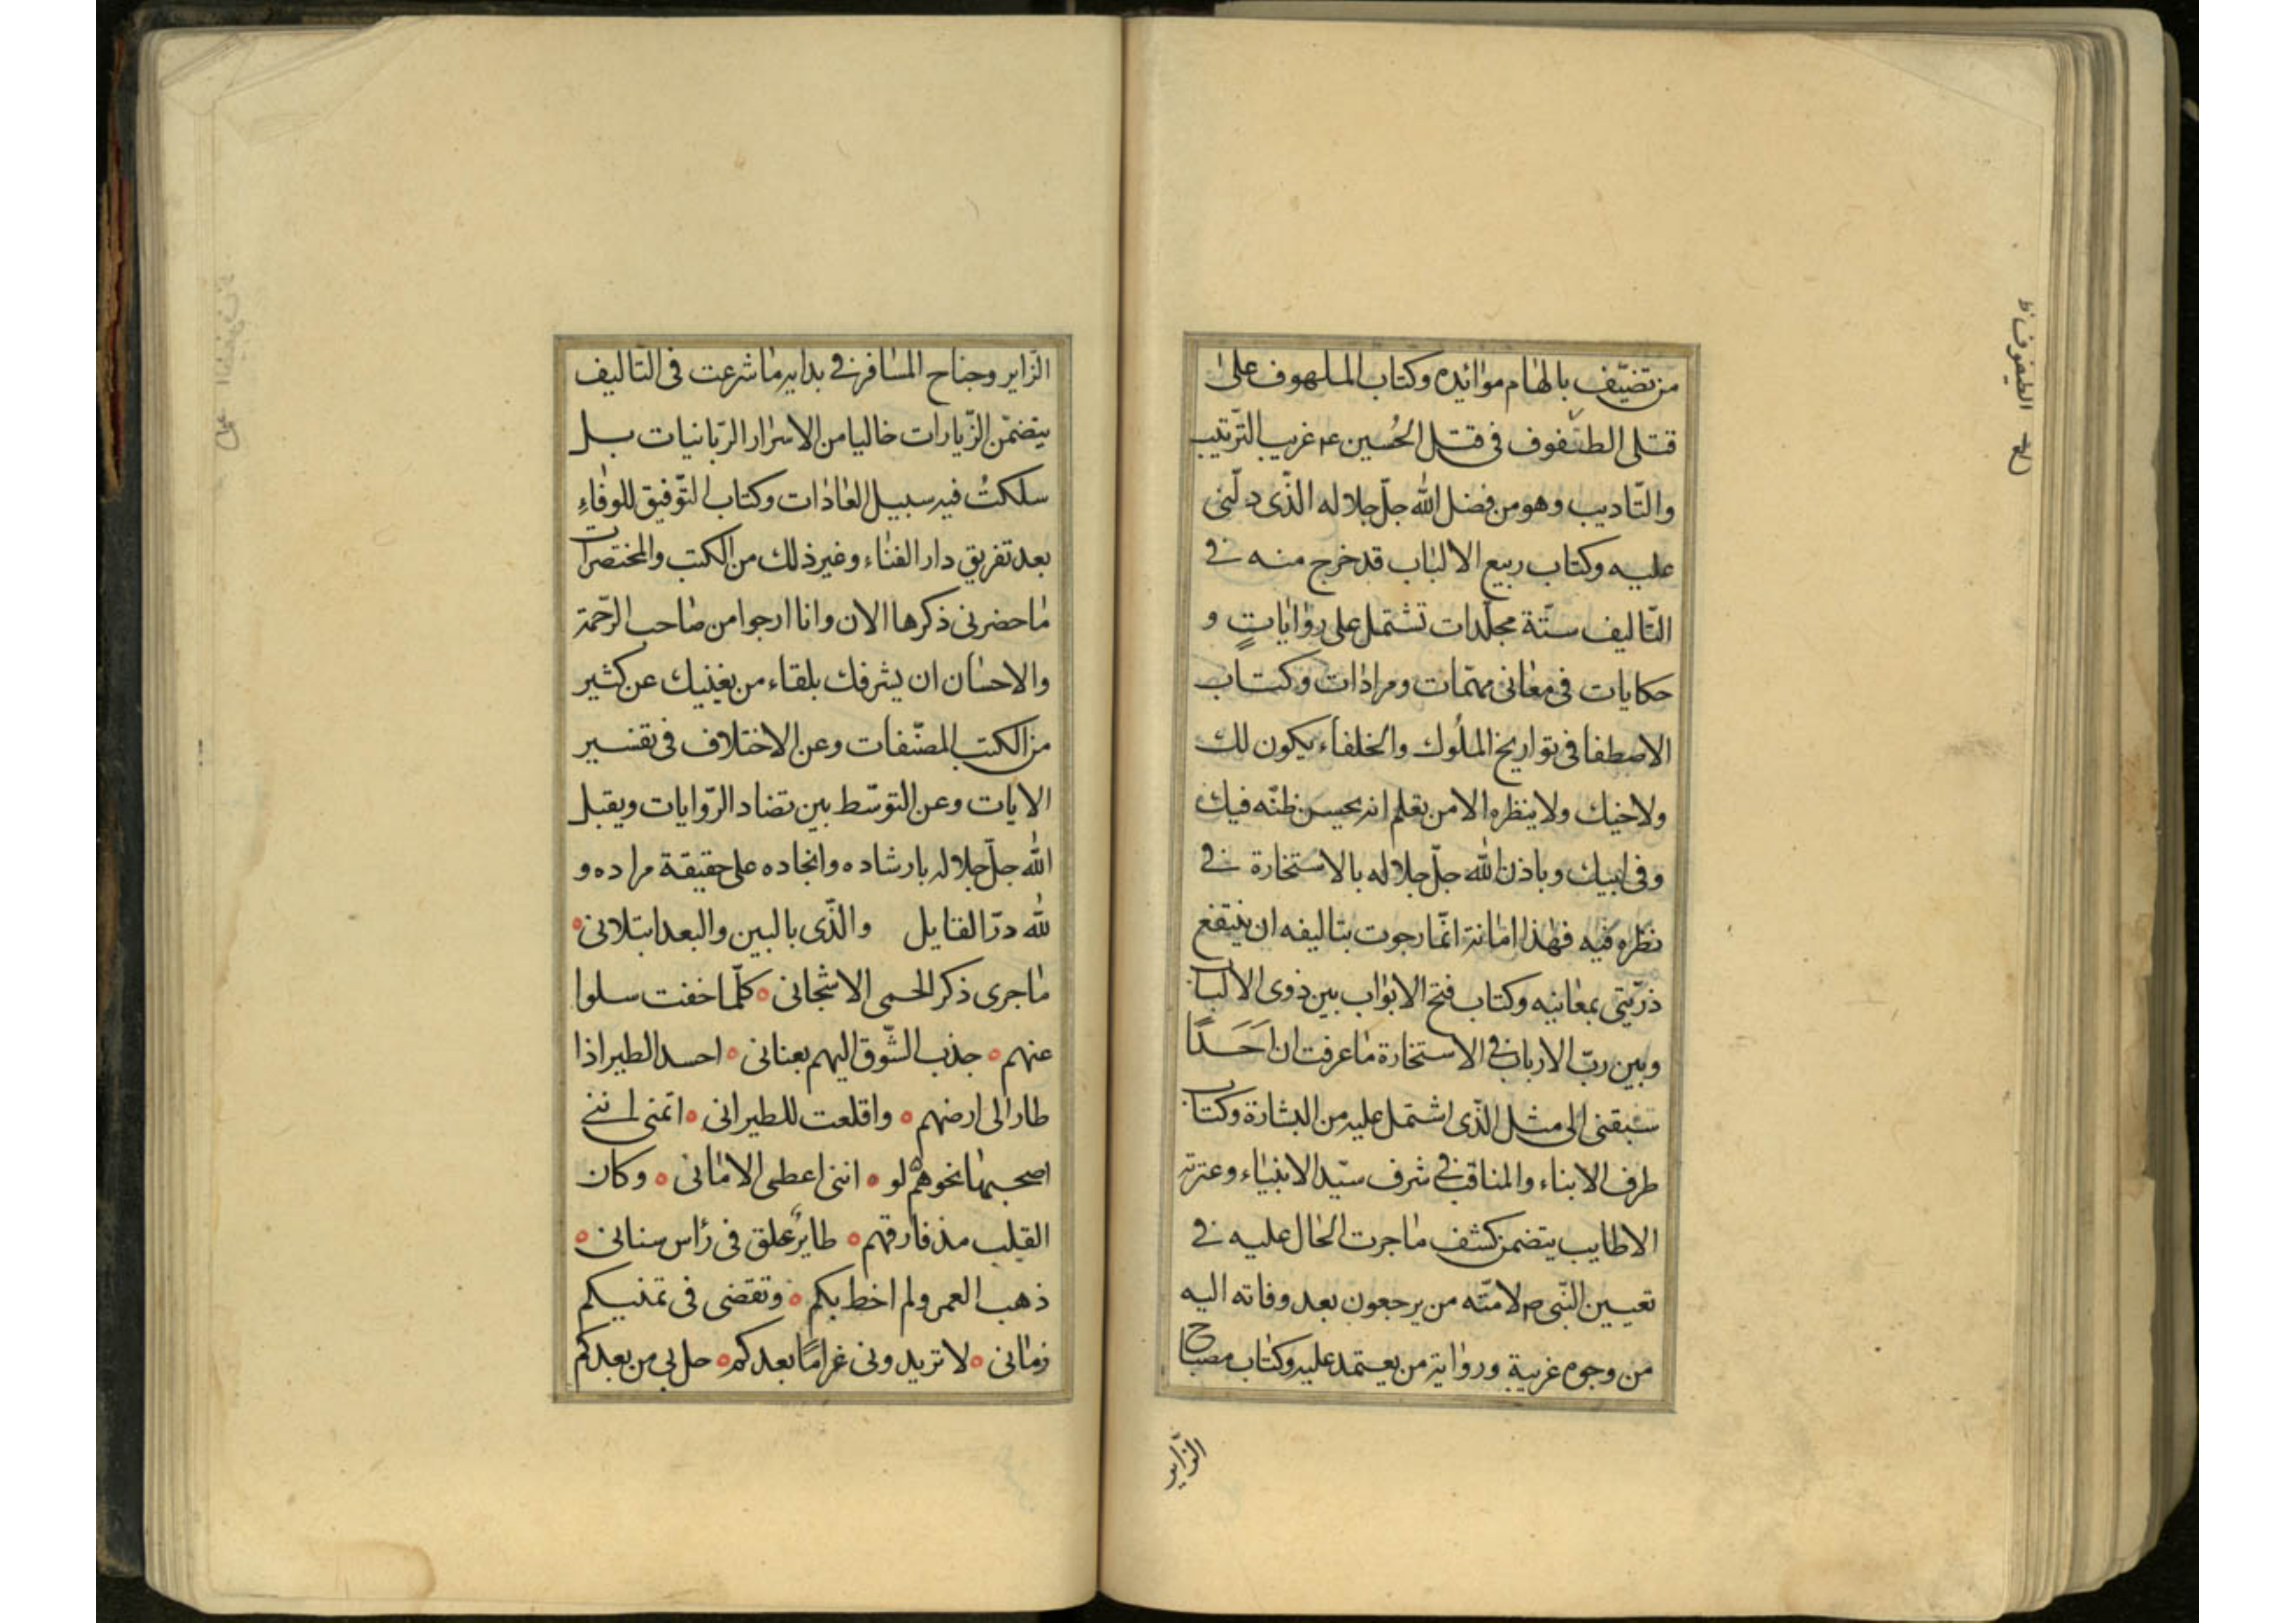 من تضيّف بالهام موائده وكتاب الملهوف على
قتلى الطفوف فى قتل الحُسين ع۴ غريب الترتيب
والتّاديب وهو من فضل الله جلّ جلاله الذّى دلّنى
عليه وكتاب ربيع الالباب قد خرج منه فى
التّاليف ستّة مجلّدات تشتمل على رواياتٍ و
حكايات فى معانى مهمّات ومرادات وكتاب
الاصطفا فى تواريخ الملُوك والخلفاء يكون لك
ولاخيك ولا ينظره الا من تعلم انه يحسن ظنّه فيك
وفى ابيك وباذن الله جلّ جلاله بالاستخارة فى
نظره فيه فهذا امانة انّما رجوت بتاليفه ان ينتفع
ذرّيّتى بمعانيه وكتاب فتح الابواب بين ذوى الالباب
وبين ربّ الارباب فى الاستخارة ما عرفت ان اَحَدًا
سبقنى الى مثل الذّى اشتمل عليه من البشارة وكتاب
طرف الابناء والمناقب فى شرف سيّد الانبياء وعترته
الاطايب يتضمن كشف ما جرت الحال عليه فى
تعيين النّبى ص لامّته من يرجعون بعد وفاته اليه
من وجوه غريبة ورواية من يعتمد عليه وكتاب مصباح
الزاير
الطفوف ظ
الزّاير وجناح المسافر فى بداية ما شرعت فى التّاليف
يتضمّن الزّيارات خاليا من الاسرار الربّانيات بل
سلكتُ فيه سبيل العادات وكتاب التّوفيق للوفاءِ
بعد تفريق دار الفناء وغير ذلك من الكتب والمختصرات
ما حضرنى ذكرها الان وانا ارجوا من صاحب الرّحمة
والاحسان ان يشرفك بلقاء من يغنيك عن كثير
من الكتب المصنّفات وعن الاختلاف فى تفسير
الايات وعن التوسّط بين تضاد الرّوايات ويقبل
الله جلّ جلاله بارشاده وانجاده على حقيقة مراده و
لله درّ القايل والذّى بالبين والبعد ابتلانى
ما جرى ذكر الحمى الا شجانى كلّما خفت سلوا
عنهم جذب الشّوق اليهم بعنانى احسد الطير اذا
طار الى ارضهم واقلعت للطيرانى اتمنى اننى
اصحبها نحوهم لو اننى اعطى الامانى وكان
القلب مذ فارقهم طايرٌ علق فى رأس سنانى
ذهب العمر ولم احظ بكم وتقضى فى تمنيكم
زمانى لا تزيدونى غرامًا بعدكم حل بى من بعدكم